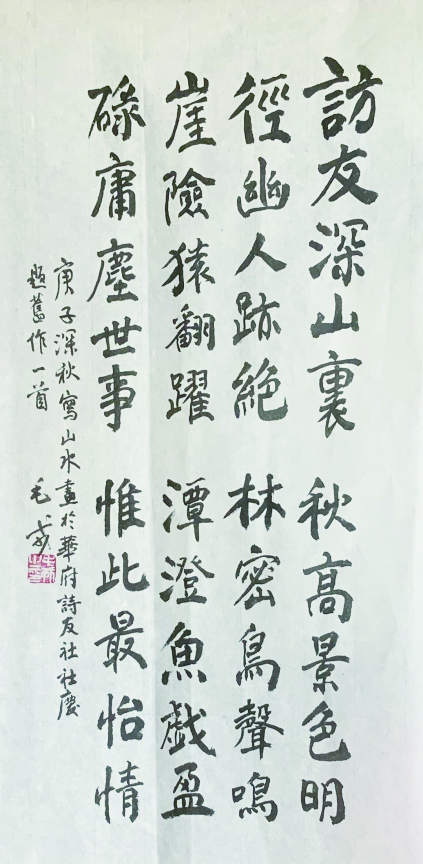 訪友深山裏 秋高景色明
徑幽人跡絶 林密鳥聲鳴
崖險猿翻躍 潭澄魚戲盈
碌庸塵世事 惟此最怡情
庚子深秋寫山水畫於華府詩友社社慶
題舊作一首 毛戎